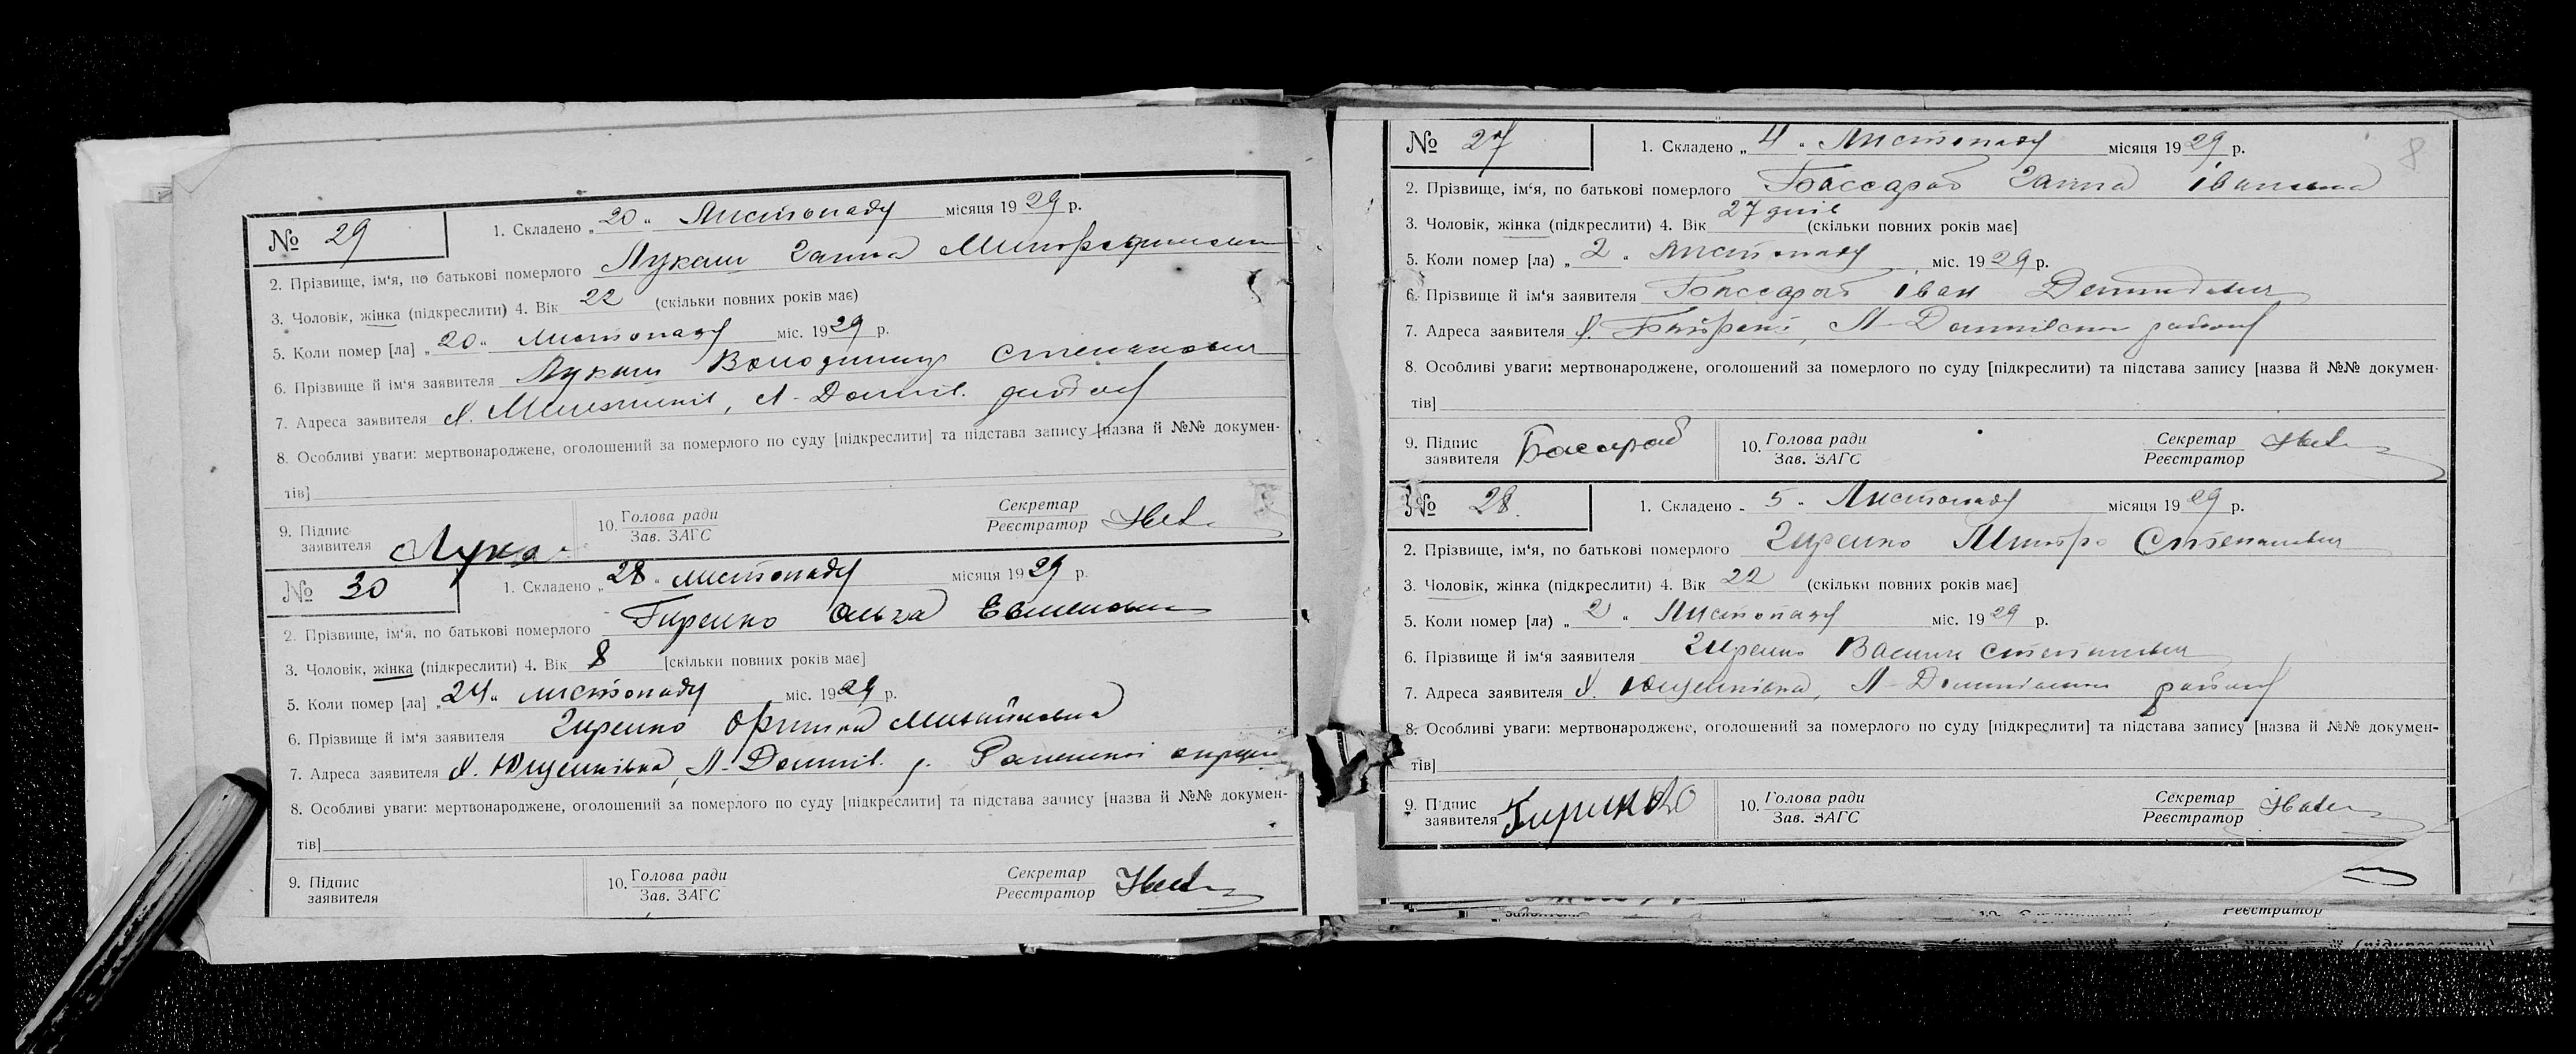 № 29
1. Складено „20“ Листопаду місяця 1929 р.
2. Прізвище, ім‘я, по батькові померлого Лукаш Ганна
3. Чоловік, жінка (підкреслити) 4. Вік 22 (скільки повних років має)
5. Коли помер [ла] „20“ листопаду міс. 1929 р.
6. Прізвище й ім‘я заявителя Лукаш Володимир Степанович
7. Адреса заявителя х.
8. Особливі уваги: мертвонароджене, оголошений за померлого по суду [підкреслити] та підстава запису [назва й №№ докумен-
тів]
9. Підпис заявителя Лука
10. Голова ради Зав. ЗАГС
Секретар Реєстратор
№ 30
1. Складено „28“ листопаду місяця 1929 р.
2. Прізвище, ім‘я, по батькові померлого Гиренко Ольга
3. Чоловік, жінка (підкреслити) 4. Вік 8 [скільки повних років має]
5. Коли помер [ла] „24“ листопаду міс. 1929 р.
6. Прізвище й ім‘я заявителя Гиренко Михайловна
7. Адреса заявителя х. Ющенківка, Л-
8. Особливі уваги: мертвонароджене, оголошений за померлого по суду [підкреслити] та підстава запису [назва й №№ докумен-
тів]
9. Підпис заявителя
10. Голова ради Зав. ЗАГС
Секретар Реєстратор
8
№ 27
1. Складено „4“ Листопаду місяця 1929 р.
2. Прізвище, ім‘я, по батькові померлого Бассараб Ганна Івановна
3. Чоловік, жінка (підкреслити) 4. Вік 27 днів (скільки повних років має]
5. Коли помер [ла) „2“ листопаду міс. 1929 р.
6. Прізвище й ім‘я заявителя Бассараб Іван
7. Адреса заявителя х. району
8. Особливі уваги: мертвонароджене, оголошений за померлого по суду [підкреслити) та підстава запису [назва й №№ докумен-
тів]
9. Підпис заявителя Басараб
10. Голова ради Зав. ЗАГС
Секретар Реєстратор
№ 28.
1. Складено „5“ Листопаду місяця 1929 р.
2. Прізвище, ім‘я, по батькові померлого Гиренко Степанович
3. Чоловік, жінка (підкреслити) 4. Вік 22 (скільки повних років має]
5. Коли помер [ла) „2“ Листопаду міс. 1929 р.
6. Прізвище й ім‘я заявителя Гиренко Василь Степанович
7. Адреса заявителя х. Ющенківка, Л- району
8. Особливі уваги: мертвонароджене, оголошений за померлого по суду [підкреслити] та підстава запису [назва й №№ докумен-
тів]
9. Підпис заявителя
10. Голова ради Зав. ЗАГС
Секретар Реєстратор
Реєстратор